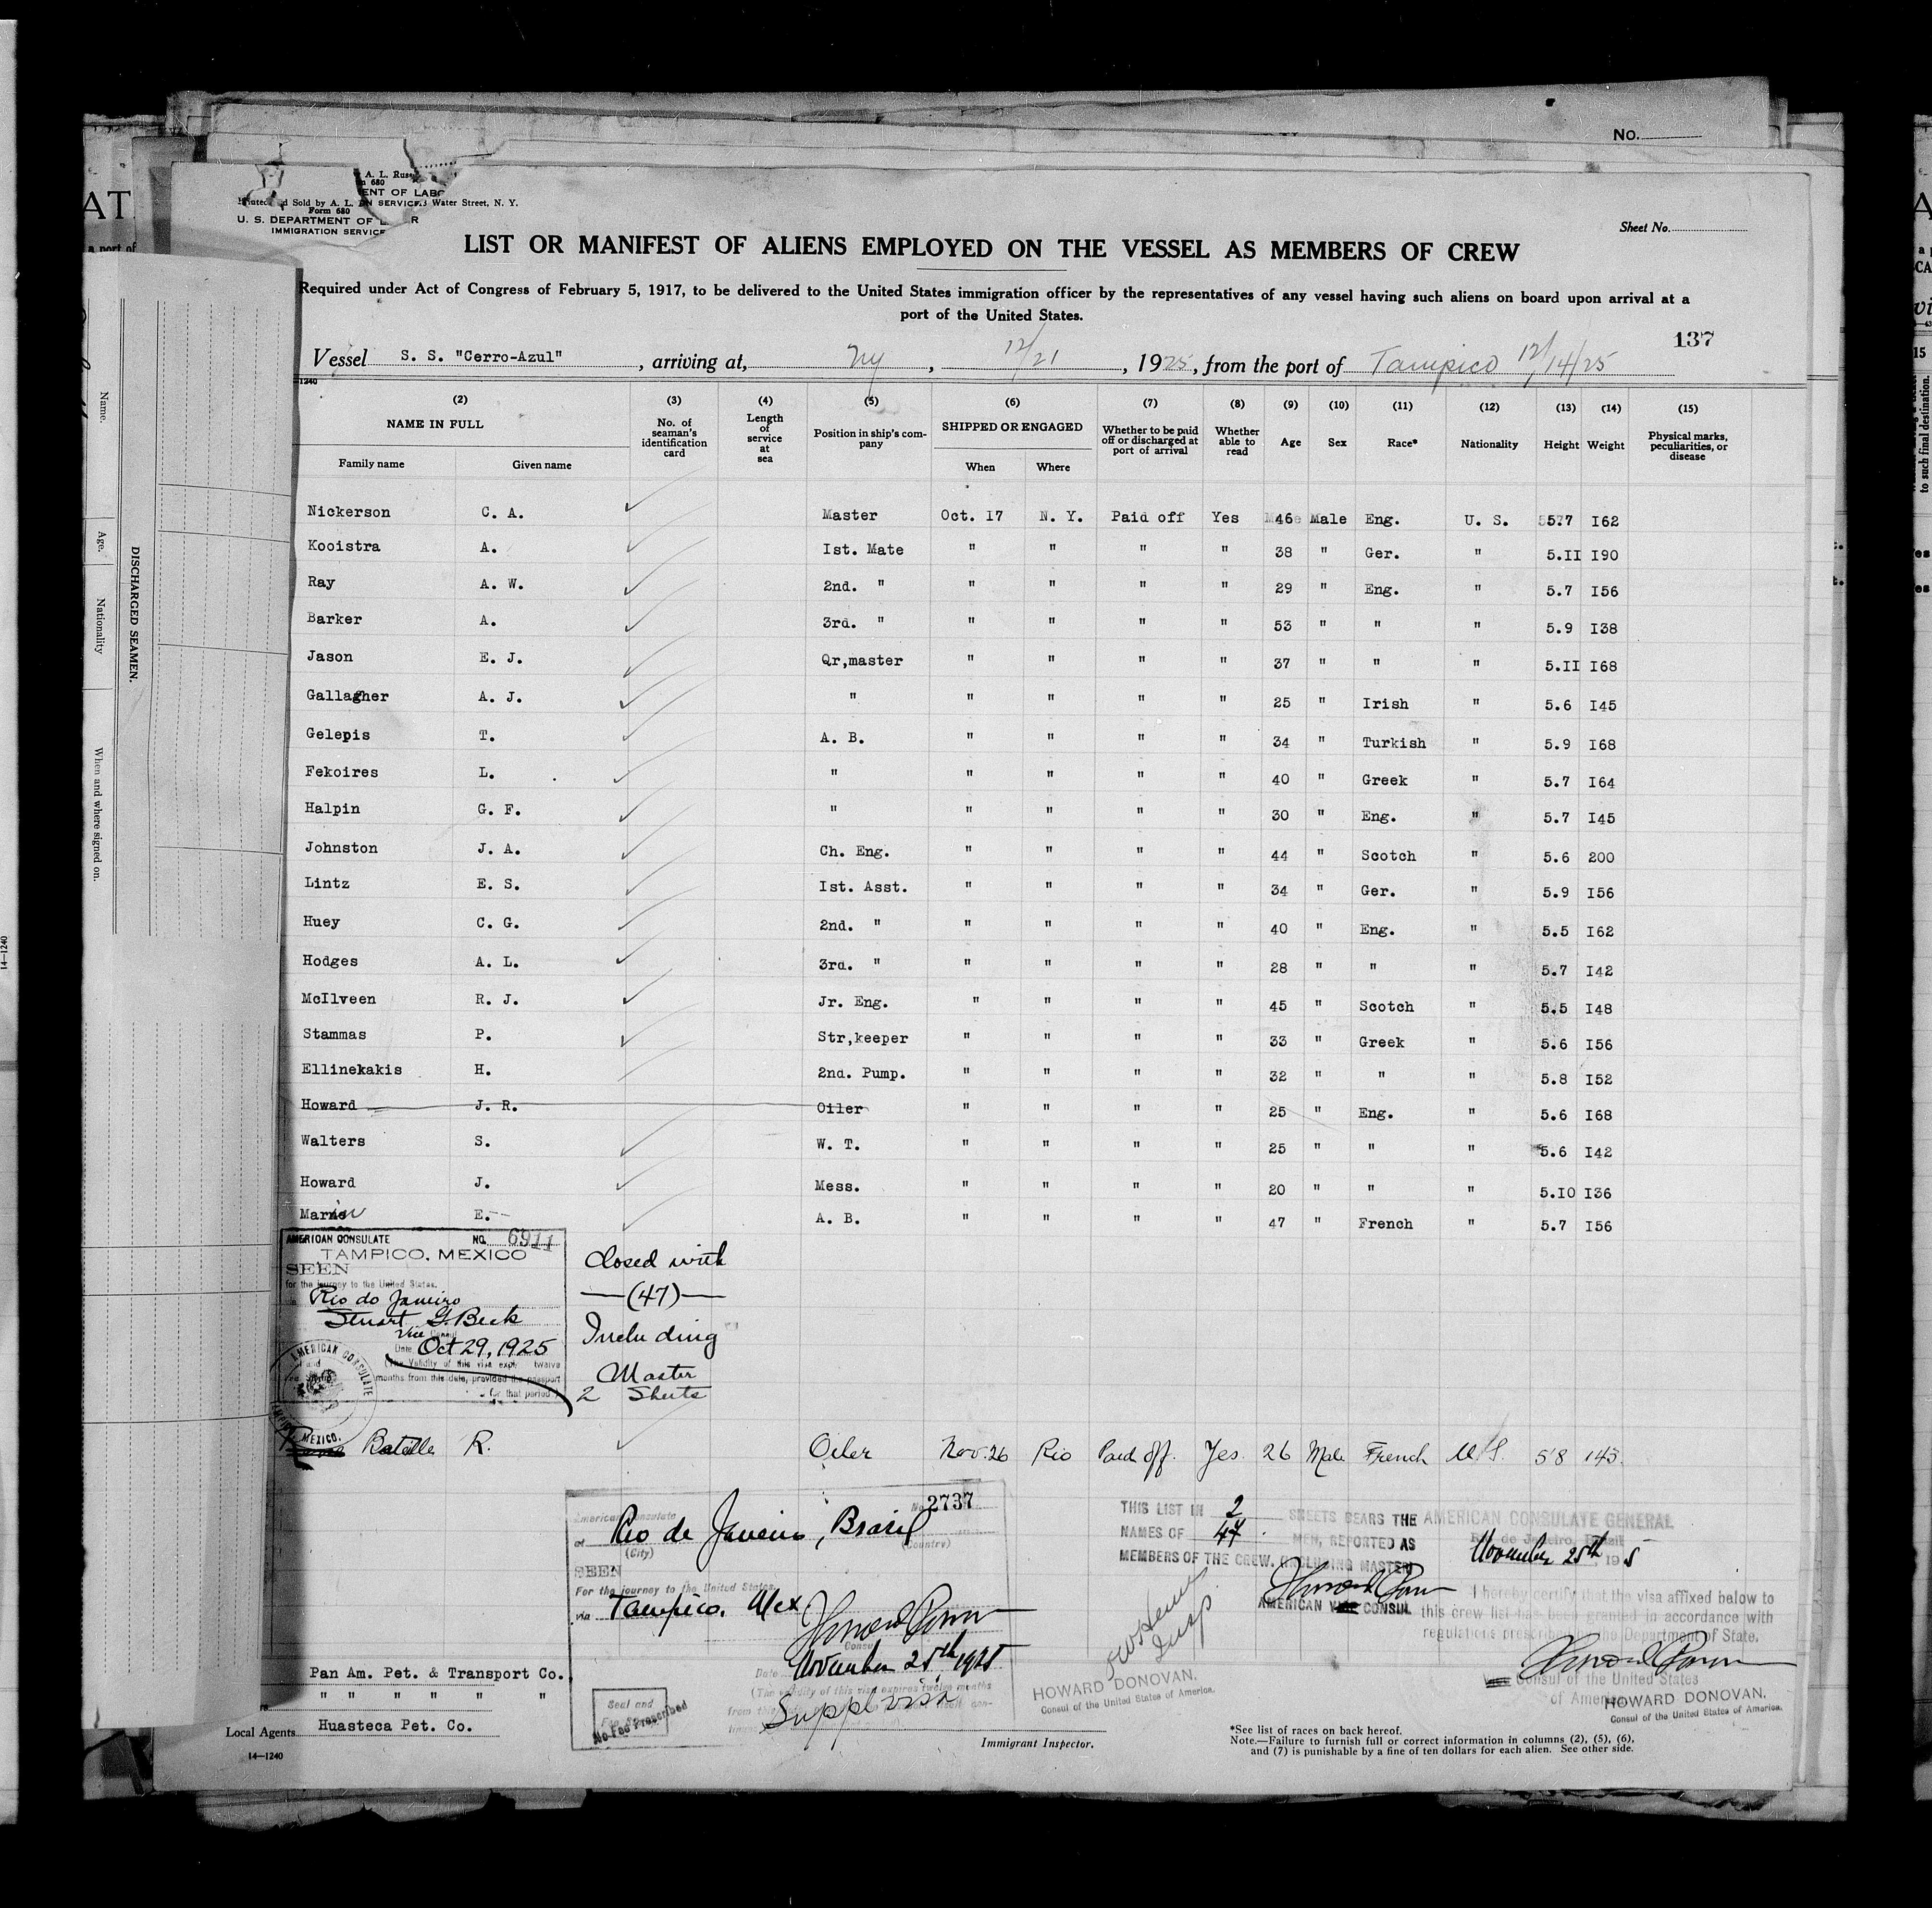 No.
A. L. Rus
m 680
ENT OF LABO
Printed d Sold by A. L. N SERVICE Water Street, N. Y.
Form 680
U. S. DEPARTMENT OF L R
IMMIGRATION SERVICE
Sheet No.
LIST OR MANIFEST OF ALIENS EMPLOYED ON THE VESSEL AS MEMBERS OF CREW
Required under Act of Congress of February 5, 1917, to be delivered to the United States immigration officer by the representatives of any vessel having such aliens on board upon arrival at a
port of the United States.
137
Vessel S. S. "Cerro-Azul", arriving at, NY, 12/21, 1925, from the port of Tampico 12/14/25
1240
(2) (3) (4) (5) (6) (7) (8) (9) (10) (11) (12) (13) (14) (15)
NAME IN FULL
Family name Given name
No. of seaman's identification card
Length of service at sea
Position in ship's company
SHIPPED OR ENGAGED
When Where
Whether to be paid off or discharged at port of arrival
Whether able to read
Age Sex Race* Nationality Height Weight
Physical marks, peculiarities, or disease
Nickerson C. A. Master Oct. 17 N. Y. Paid off Yes 46 Male Eng. U. S. 5.7 I62
Kooistra A. Ist. Mate " " " " 38 " Ger. " 5.II I90
Ray A. W. 2nd. " " " " " 29 " Eng. " 5.7 I56
Barker A. 3rd. " " " " " 53 " " " 5.9 I38
Jason E. J. Qr,master " " " " 37 " " " 5.II I68
Gallagher A. J. " " " " " 25 " Irish " 5.6 I45
Gelepis T. A. B. " " " " 34 " Turkish " 5.9 I68
Fekoires L. " " " " " 40 " Greek " 5.7 I64
Halpin G. F. " " " " " 30 " Eng. " 5.7 I45
Johnston J. A. Ch. Eng. " " " " 44 " Scotch " 5.6 200
Lintz E. S. Ist. Asst. " " " " 34 " Ger. " 5.9 I56
Huey C. G. 2nd. " " " " " 40 " Eng. " 5.5 I62
Hodges A. L. 3rd. " " " " " 28 " " " 5.7 I42
McIlveen R. J. Jr. Eng. " " " " 45 " Scotch " 5.5 I48
Stammas P. Str,keeper " " " " 33 " Greek " 5.6 I56
Ellinekakis H. 2nd. Pump. " " " " 32 " " " 5.8 I52
Howard J. R. Oiler " " " " 25 " Eng. " 5.6 I68
Walters S. W. T. " " " " 25 " " " 5.6 I42
Howard J. Mess. " " " " 20 " " " 5.IO I36
E. A. B. " " " " 47 " French " 5.7 I56
AMERICAN CONSULATE NO. 6911
TAMPICO, MEXICO
SEEN
for the journey to the United States.
Rio do Janeiro
Stuart G. Beck
Vice
Date Oct 29, 1925
(The Validity of this visa expr. twelve
months from this date, provided the passport
for that period)
AMERICAN CONSULATE
TAMPICO MEXICO.
Closed with
—(47)—
Including
Master
2 Sheets
Batelle R. Oiler Nov. 26 Rio Paid off. Yes. 26 Male French U S. 5'8 143.
American Consulate No. 2737
at Rio de Janeiro, Brasil
(City) (Country)
SEEN
For the journey to the United States
via Tampico, Mex
Consul
Date November 25th 1925
(The validity of this visa expires twelve months
Suppl visa
Seal and
No Fee Prescribed
THIS LIST IN 2 SHEETS BEARS THE
NAMES OF 47. MEN, REPORTED AS
MEMBERS OF THE CREW. (INCLUDING MASTER)
AMERICAN VICE CONSUL
Insp
HOWARD DONOVAN.
Consul of the United States of America.
AMERICAN CONSULATE GENERAL
Rio de Janeiro, Brazil
November 25th, 19 5
I hereby certify that the visa affixed below to
this crew list has been granted in accordance with
regulations prescribed by the Department of State.
Vice Consul of the United States
of America
HOWARD DONOVAN.
Consul of the United States of America.
Pan Am. Pet. & Transport Co.
" " " " " "
Local Agents Huasteca Pet. Co.
14—1240
Immigrant Inspector.
*See list of races on back hereof.
Note.—Failure to furnish full or correct information in columns (2), (5), (6),
and (7) is punishable by a fine of ten dollars for each alien. See other side.
DISCHARGED SEAMEN.
Name.
Age.
Nationality
When and where signed on.
14—1240